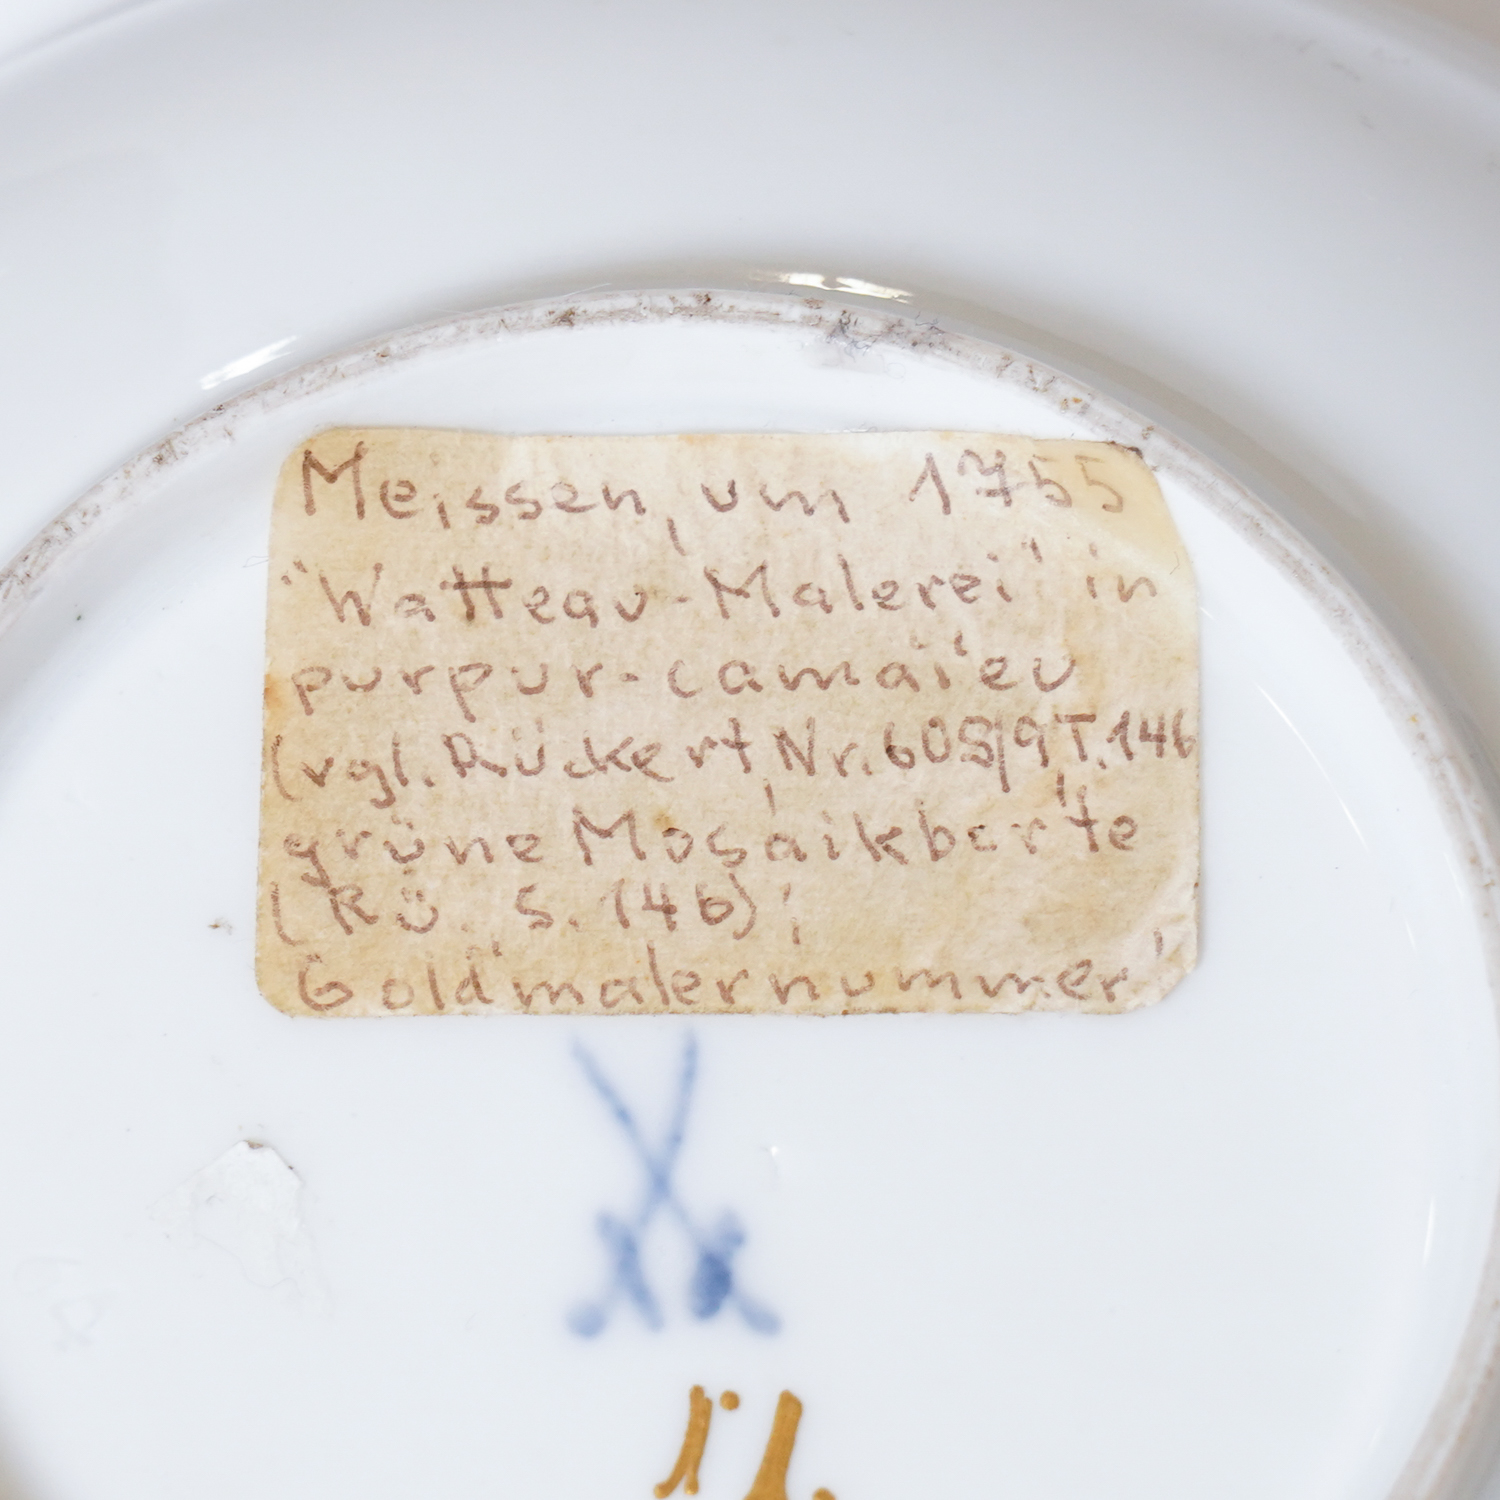 Meissen, um 1755
"Watteau-Malerei" in
purpur-camaieu
(vgl. Rückert, Nr. 608/9 T. 146
grüne Mosaikborte
(Rü. S. 146);
Goldmalernummer!